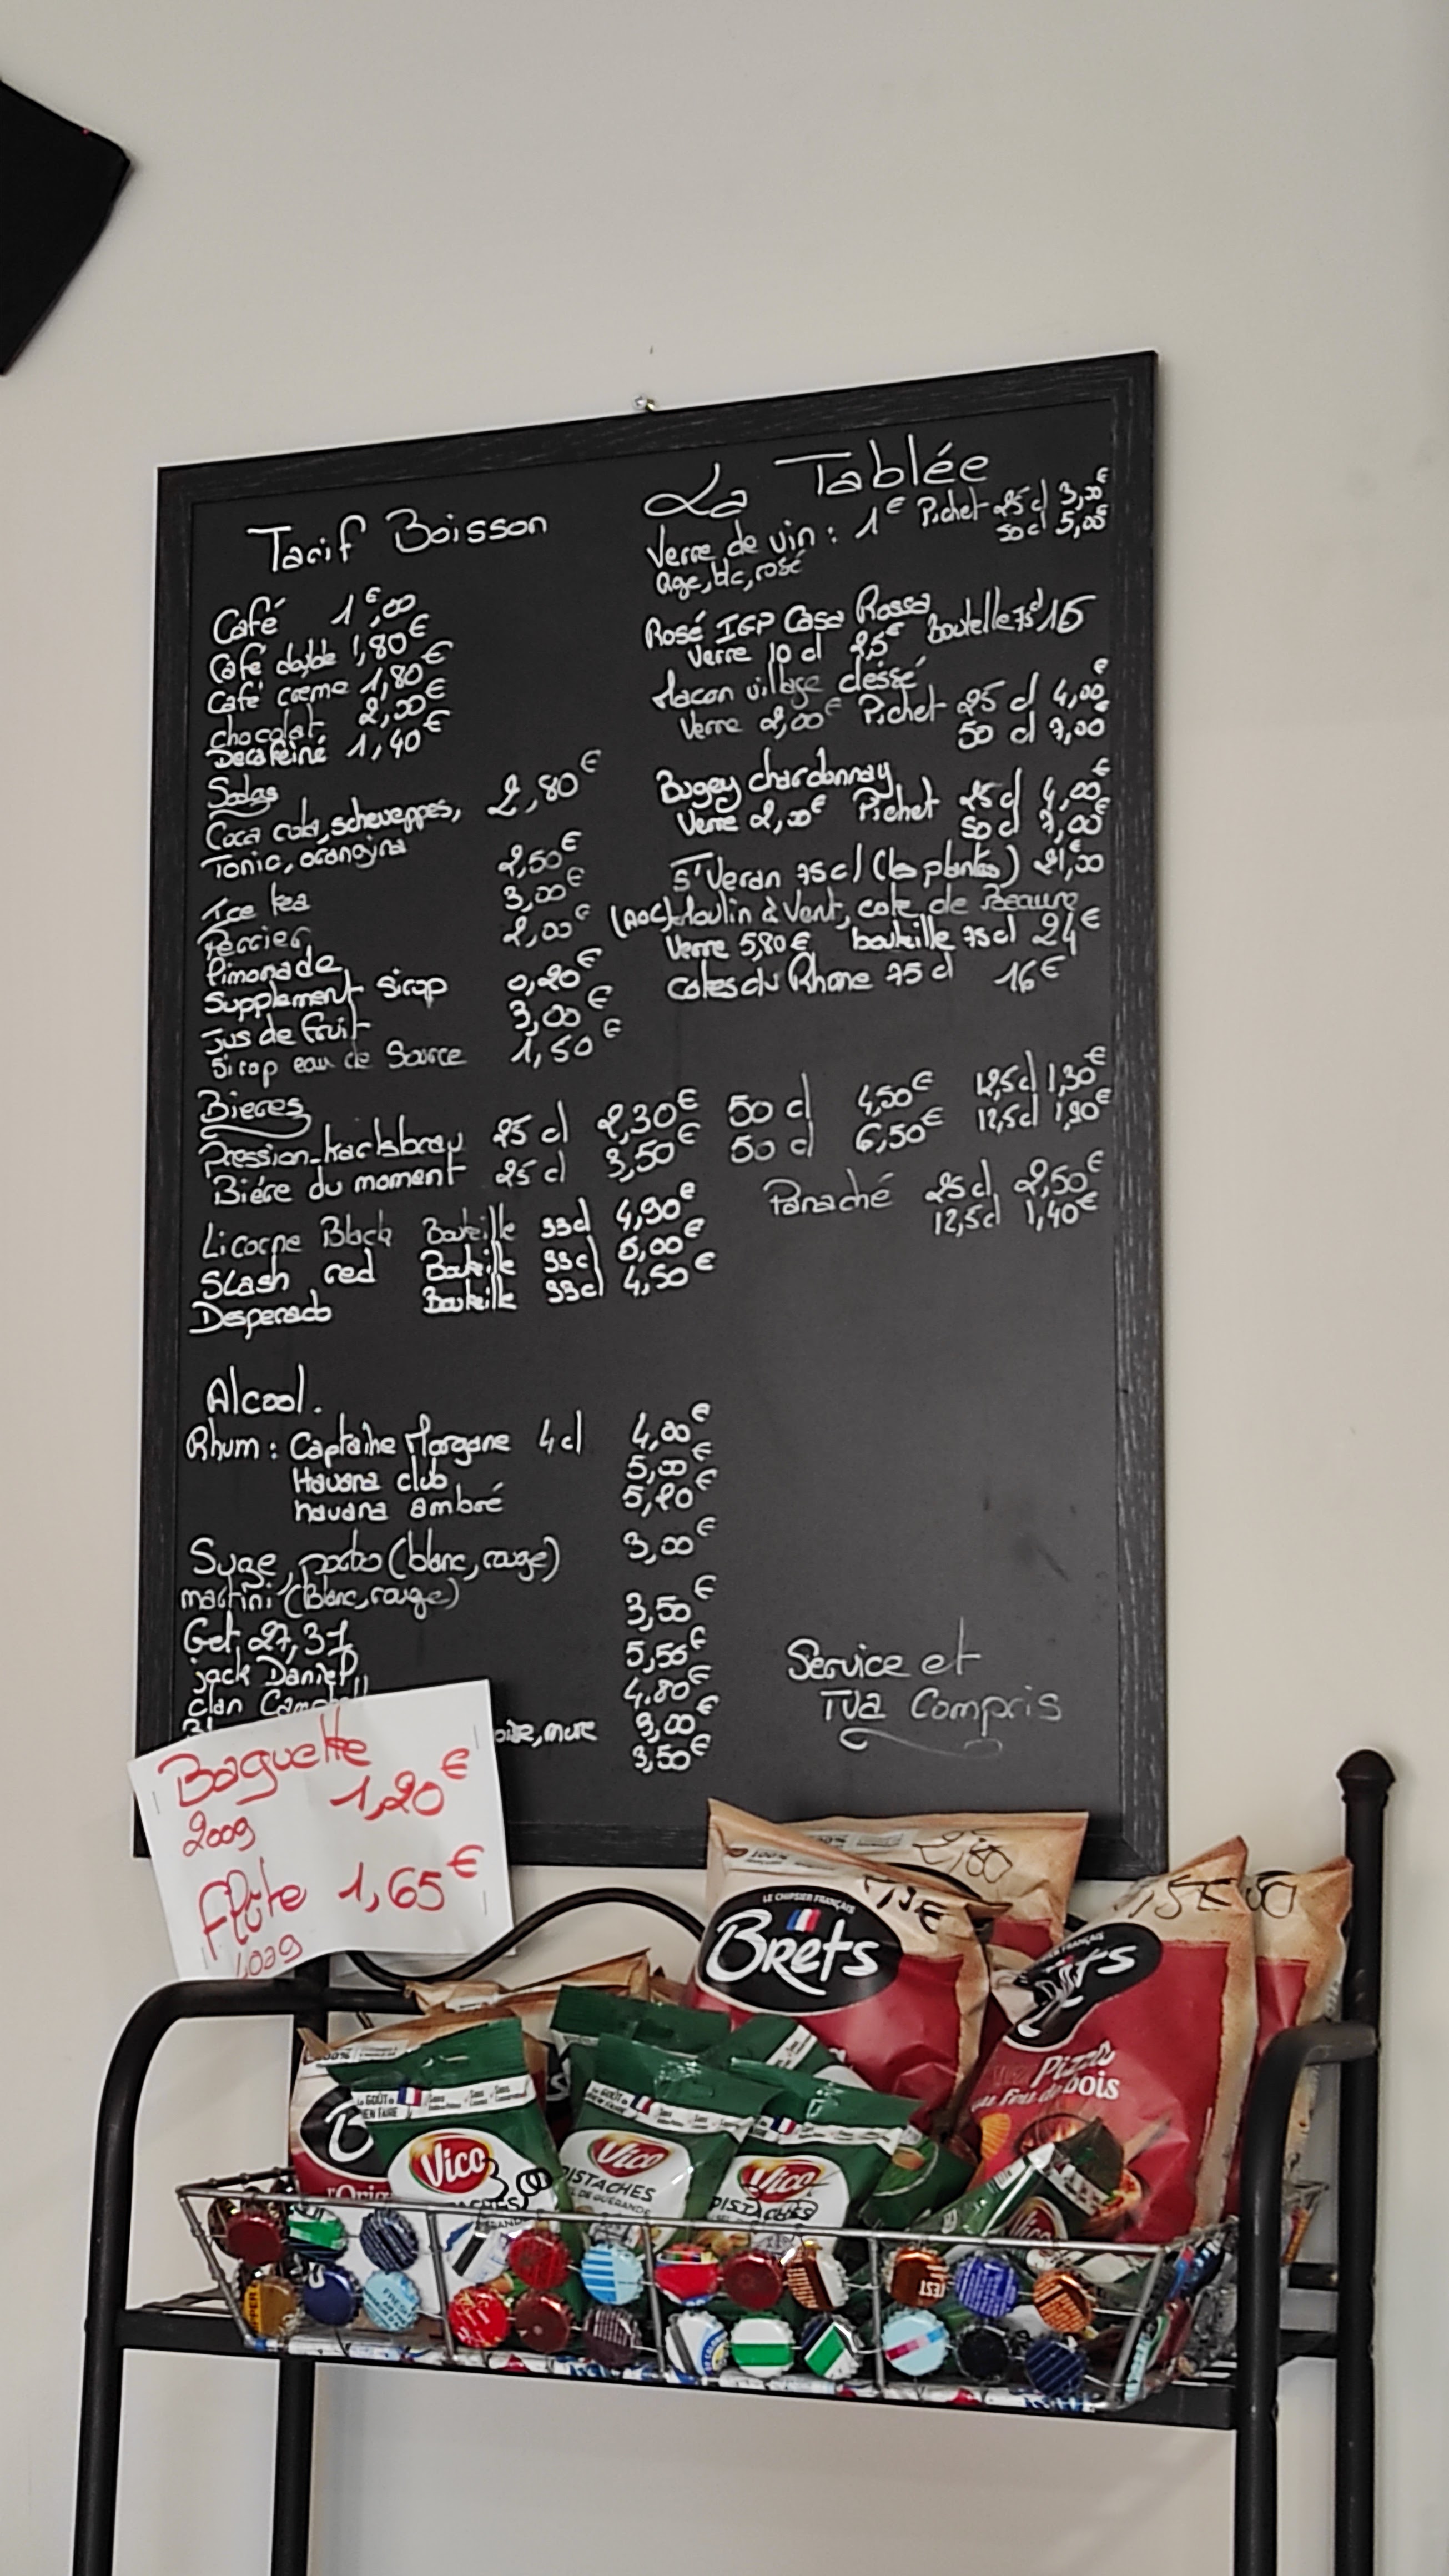 La Tablée
Tarif Boisson
Café 1€,00
Café double 1,80€
Café creme 1,80€
chocolat 2,00€
Decaféiné 1,40€
Sodas
Coca cola, scheweppes, 2,80€
Tonic, orangina
Ice tea 2,50€
Perrier 3,00€
Limonade 2,00€
Supplement sirop 0,20€
Jus de fruit 3,00€
Sirop eau de Source 1,50€
Verre de vin : 1€ Pichet 25 cl 3,00€
50 cl 5,00€
blc, rosé
Rosé IGP Casa Rossa
Verre 10 cl Bouteille 75cl 15
Macon village
Verre 2,00€ Pichet 25 cl 4,00€
50 cl 7,00
Bugey chardonnay
Verre 2,00€ Pichet 25 cl 4,00€
50 cl 7,00€
St Veran 75 cl (les plantés) 21,00
(AOC) Moulin à Vent, cote de Beaune
Verre 5,80€ bouteille 75cl 24€
cotes du Rhone 75 cl 16€
Bieres
Pression 25 cl 2,30€ 50 cl 4,50€ 12,5cl 1,30€
Biére du moment 25 cl 3,50€ 50 cl 6,50€ 12,5cl 1,90€
Panaché 25cl 2,50€
12,5cl 1,40€
Licorne Black Bouteille 33cl 4,90€
Slash red Bouteille 33cl 5,00€
Desperado Bouteille 33cl 4,50€
Alcool.
Rhum : Captaine Morgane 4 cl 4,00€
Havana club 5,00€
havana ambré 5,20€
Suze, porto (blanc, rouge) 3,00€
martini (Blanc, rouge)
Get 27, 31 3,50€
jack Daniel 5,50€
clan Campbell 4.80€
mure 3,00€
3,50€
Service et
TVA Compris
Baguette
200g 1,20€
Flûte 1,65€
2,80
LE CHIPSIER FRANÇAIS
BRETS
Pizza
au Feu de bois
Vico
Vico
PISTACHES
SEL DE GUÉRANDE
Vico
PISTACHES